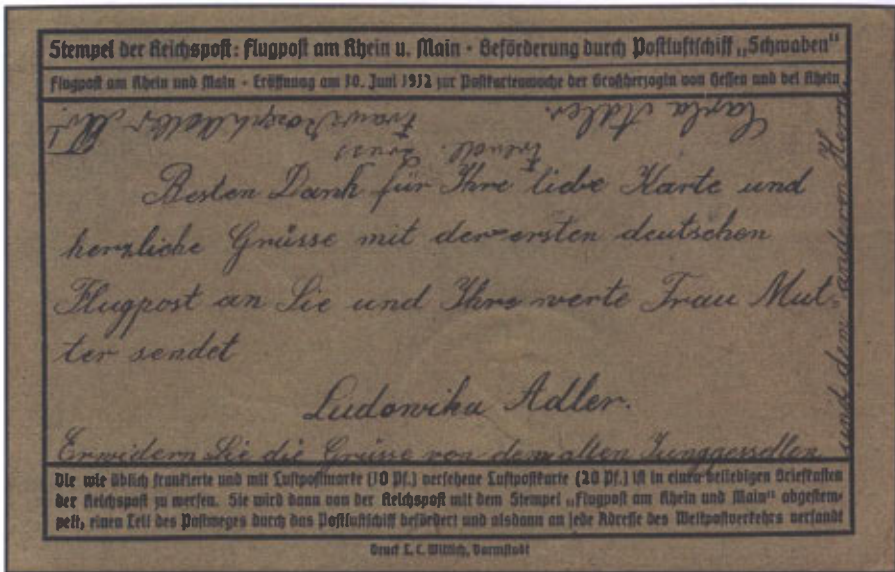 Stempel der Reichspost: Flugpost am Rhein u. Main - Beförderung durch Postluftschiff „Schwaben"
Flugpost am Rhein und Main - Eröffnung am 10. Juni 1912 zur Postkartenwoche der Großherzogin von Hessen und bei Rhein
Carla Adler.
Freundl. Gruss
Besten Dank für Ihre liebe Karte und
herzliche Grüsse mit der ersten deutschen
Flugpost an Sie und Ihre werte Frau Mut-
ter sendet
Ludowika Adler.
Erwidern Sie die Grüsse von dem alten Junggesellen
und dem anderen Herrn
Die wie üblich frankierte und mit Luftpostmarke (10 Pf.) versehene Luftpostkarte (20 Pf.) ist in einen beliebigen Briefkasten
der Reichspost zu werfen. Sie wird dann von der Reichspost mit dem Stempel „Flugpost am Rhein und Main" abgestem-
pelt, einen Teil des Postweges durch das Postluftschiff befördert und alsdann an jede Adresse des Weltpostverkehrs versandt
Druck L. C. Wittich, Darmstadt